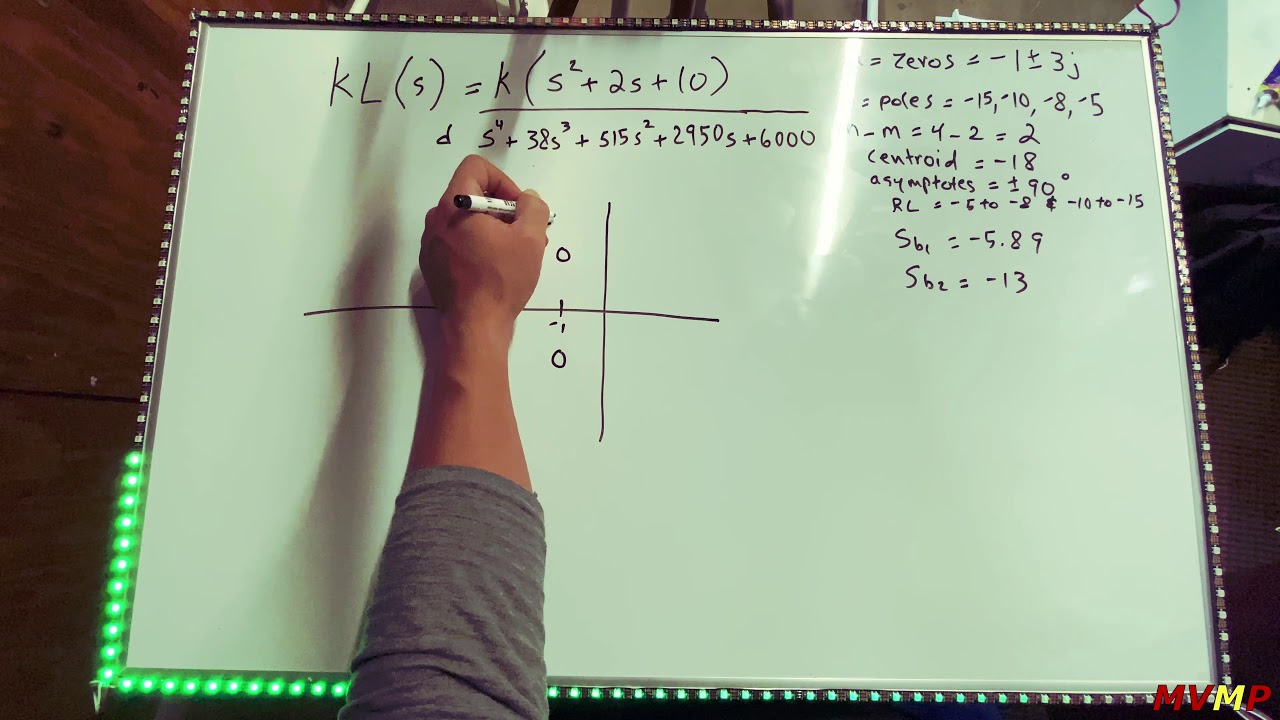 KL(s) = K(s² + 2s + 10)
d s⁴ + 38s³ + 515s² + 2950s + 6000
= zeros = -1 ± 3j
= poles = -15, -10, -8, -5
n - m = 4 - 2 = 2
centroid = -18
asymptotes = ± 90°
RL = -5 to -8 & -10 to -15
Sb₁ = -5.89
Sb₂ = -13
-1
MVMP